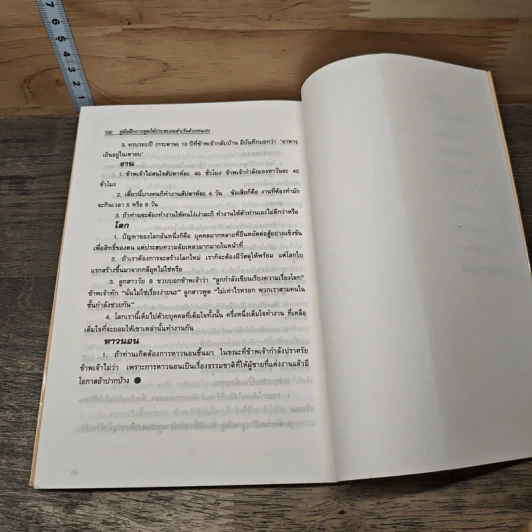 7
6
5
4
3
2
1
100 คู่มือฝึกการพูดให้ประสบผลสำเร็จด้วยตนเอง
3. ครบรอบปี (กระดาษ) 10 ปีที่ข้าพเจ้ากลับบ้าน มีบันทึกบอกว่า "อาหาร
เย็นอยู่ในเตาอบ"
งาน
1. ข้าพเจ้าไม่สนใจสัปดาห์ละ 40 ชั่วโมง ข้าพเจ้ากำลังมองหาวันละ 40
ชั่วโมง
2. เดี๋ยวนี้บางคนก็ทำงานสัปดาห์ละ 4 วัน ข้อเสียก็คือ งานที่ต้องทำมัก
จะกินเวลา 5 หรือ 6 วัน
3. ถ้าท่านจะต้องทำงานให้คนโง่เง่าละก็ ทำงานให้ตัวท่านเองไม่ดีกว่าหรือ
โลก
1. ปัญหาของโลกอันหนึ่งก็คือ บุคคลมากหลายที่ยืนหยัดต่อสู้อย่างแข็งขัน
เพื่อสิทธิ์ของตน แต่ประสบความล้มเหลวมากมายในหน้าที่
2. ถ้าเราต้องการจะสร้างโลกใหม่ เราก็จะต้องมีวัตถุให้พร้อม แต่โลกใบ
แรกสร้างขึ้นมาจากกลียุคไม่ใช่หรือ
3. ลูกสาววัย 8 ขวบบอกข้าพเจ้าว่า "ลูกกำลังเขียนเรียงความเรื่องโลก"
ข้าพเจ้าทัก "นั่นไม่ใช่เรื่องง่ายนะ" ลูกสาวพูด "ไม่เท่าไรหรอก พวกเราสามคนใน
ชั้นกำลังช่วยกัน"
4. โลกเรานี้เต็มไปด้วยบุคคลที่เต็มใจทั้งนั้น ครึ่งหนึ่งเต็มใจทำงาน ที่เหลือ
เต็มใจที่จะยอมให้เขาเหล่านั้นทำงานกัน
หาวนอน
1. ถ้าท่านเกิดต้องการหาวนอนขึ้นมา ในขณะที่ข้าพเจ้ากำลังปราศรัย
ข้าพเจ้าไม่ว่า เพราะการหาวนอนเป็นเรื่องธรรมชาติที่ให้ผู้ชายที่แต่งงานแล้วมี
โอกาสอ้าปากบ้าง